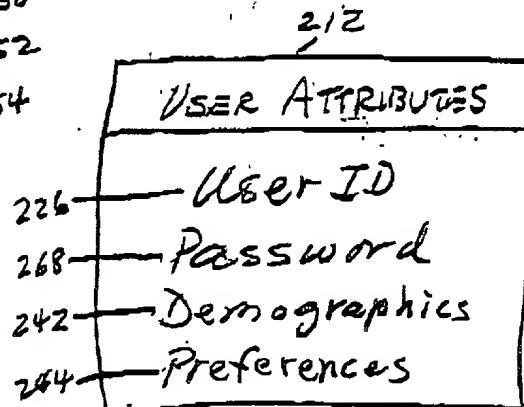 212
52
54
USER ATTRIBUTES
226 User ID
268 Password
242 Demographics
244 Preferences